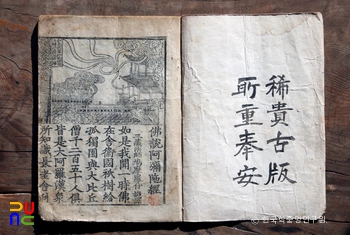 稀貴古版
所重奉安
佛說阿彌陀經
如是我聞一時佛
在舍衛國祇樹給
孤獨園與大比丘
僧千二百五十人俱
皆是大阿羅漢衆
所知識長老舍利
© 한국학중앙연구원